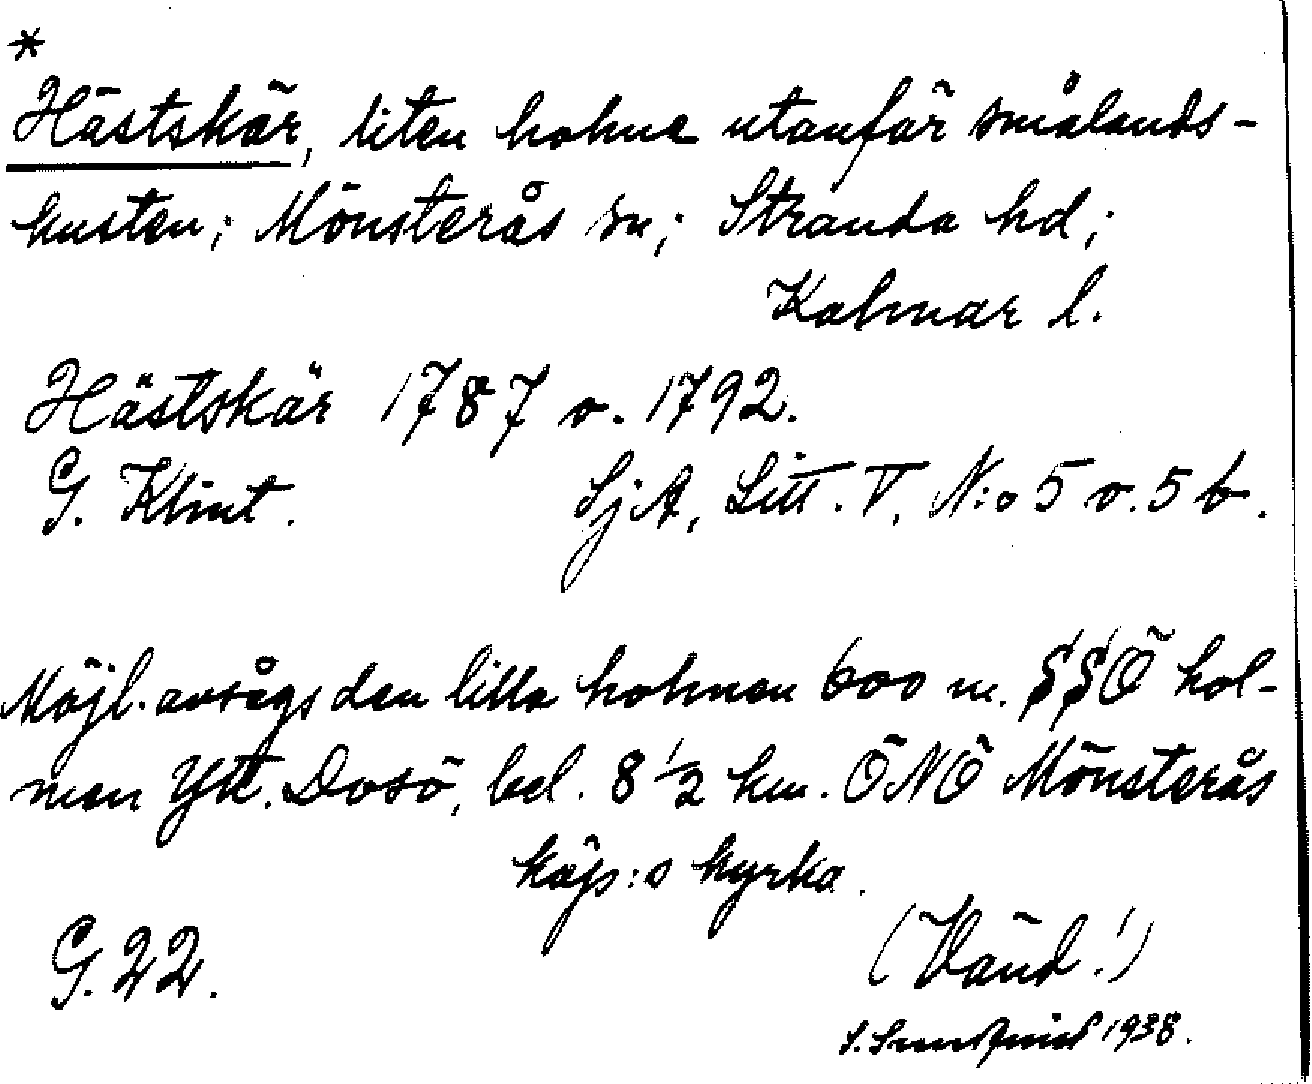 *
Hästskär, liten holme utanför smålands-
kusten; Mönsterås sn; Stranda hd;
Kalmar l.
Hästskär 1787 o. 1792.
G. Klint. SjA, Litt. V, N:o 5 o. 5 b.
Möjl. avsågs den lilla holmen 600 m. SSÖ hol-
men Ytt. Dosö, bel. 8 1/2 km. ÖNÖ Mönsterås
köp:s kyrka.
G. 22. (Vänd!)
S. 1938.